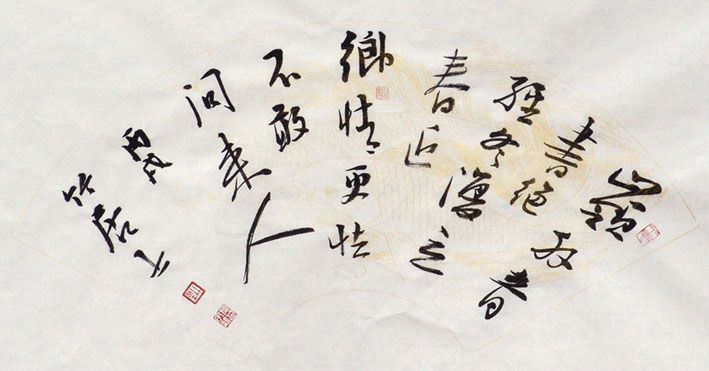 嶺外音
書絕
經冬復立
春近
鄉情更怯
不敢
問來人
丙戌
竹居士